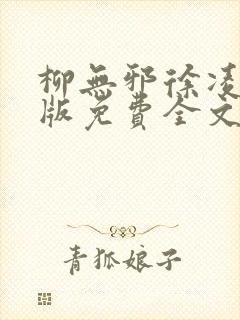 柳無邪徐凌
版免費全文
青狐娘子